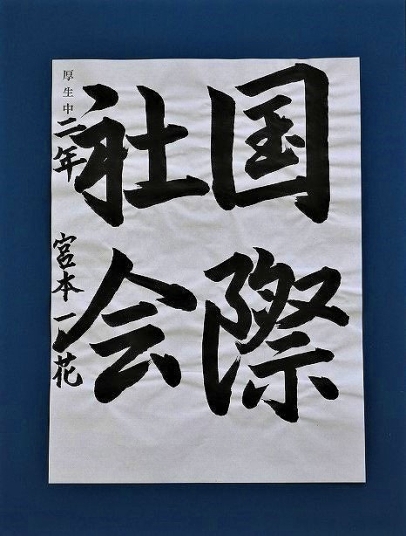 国際
社会
厚生中二年 宮本一花